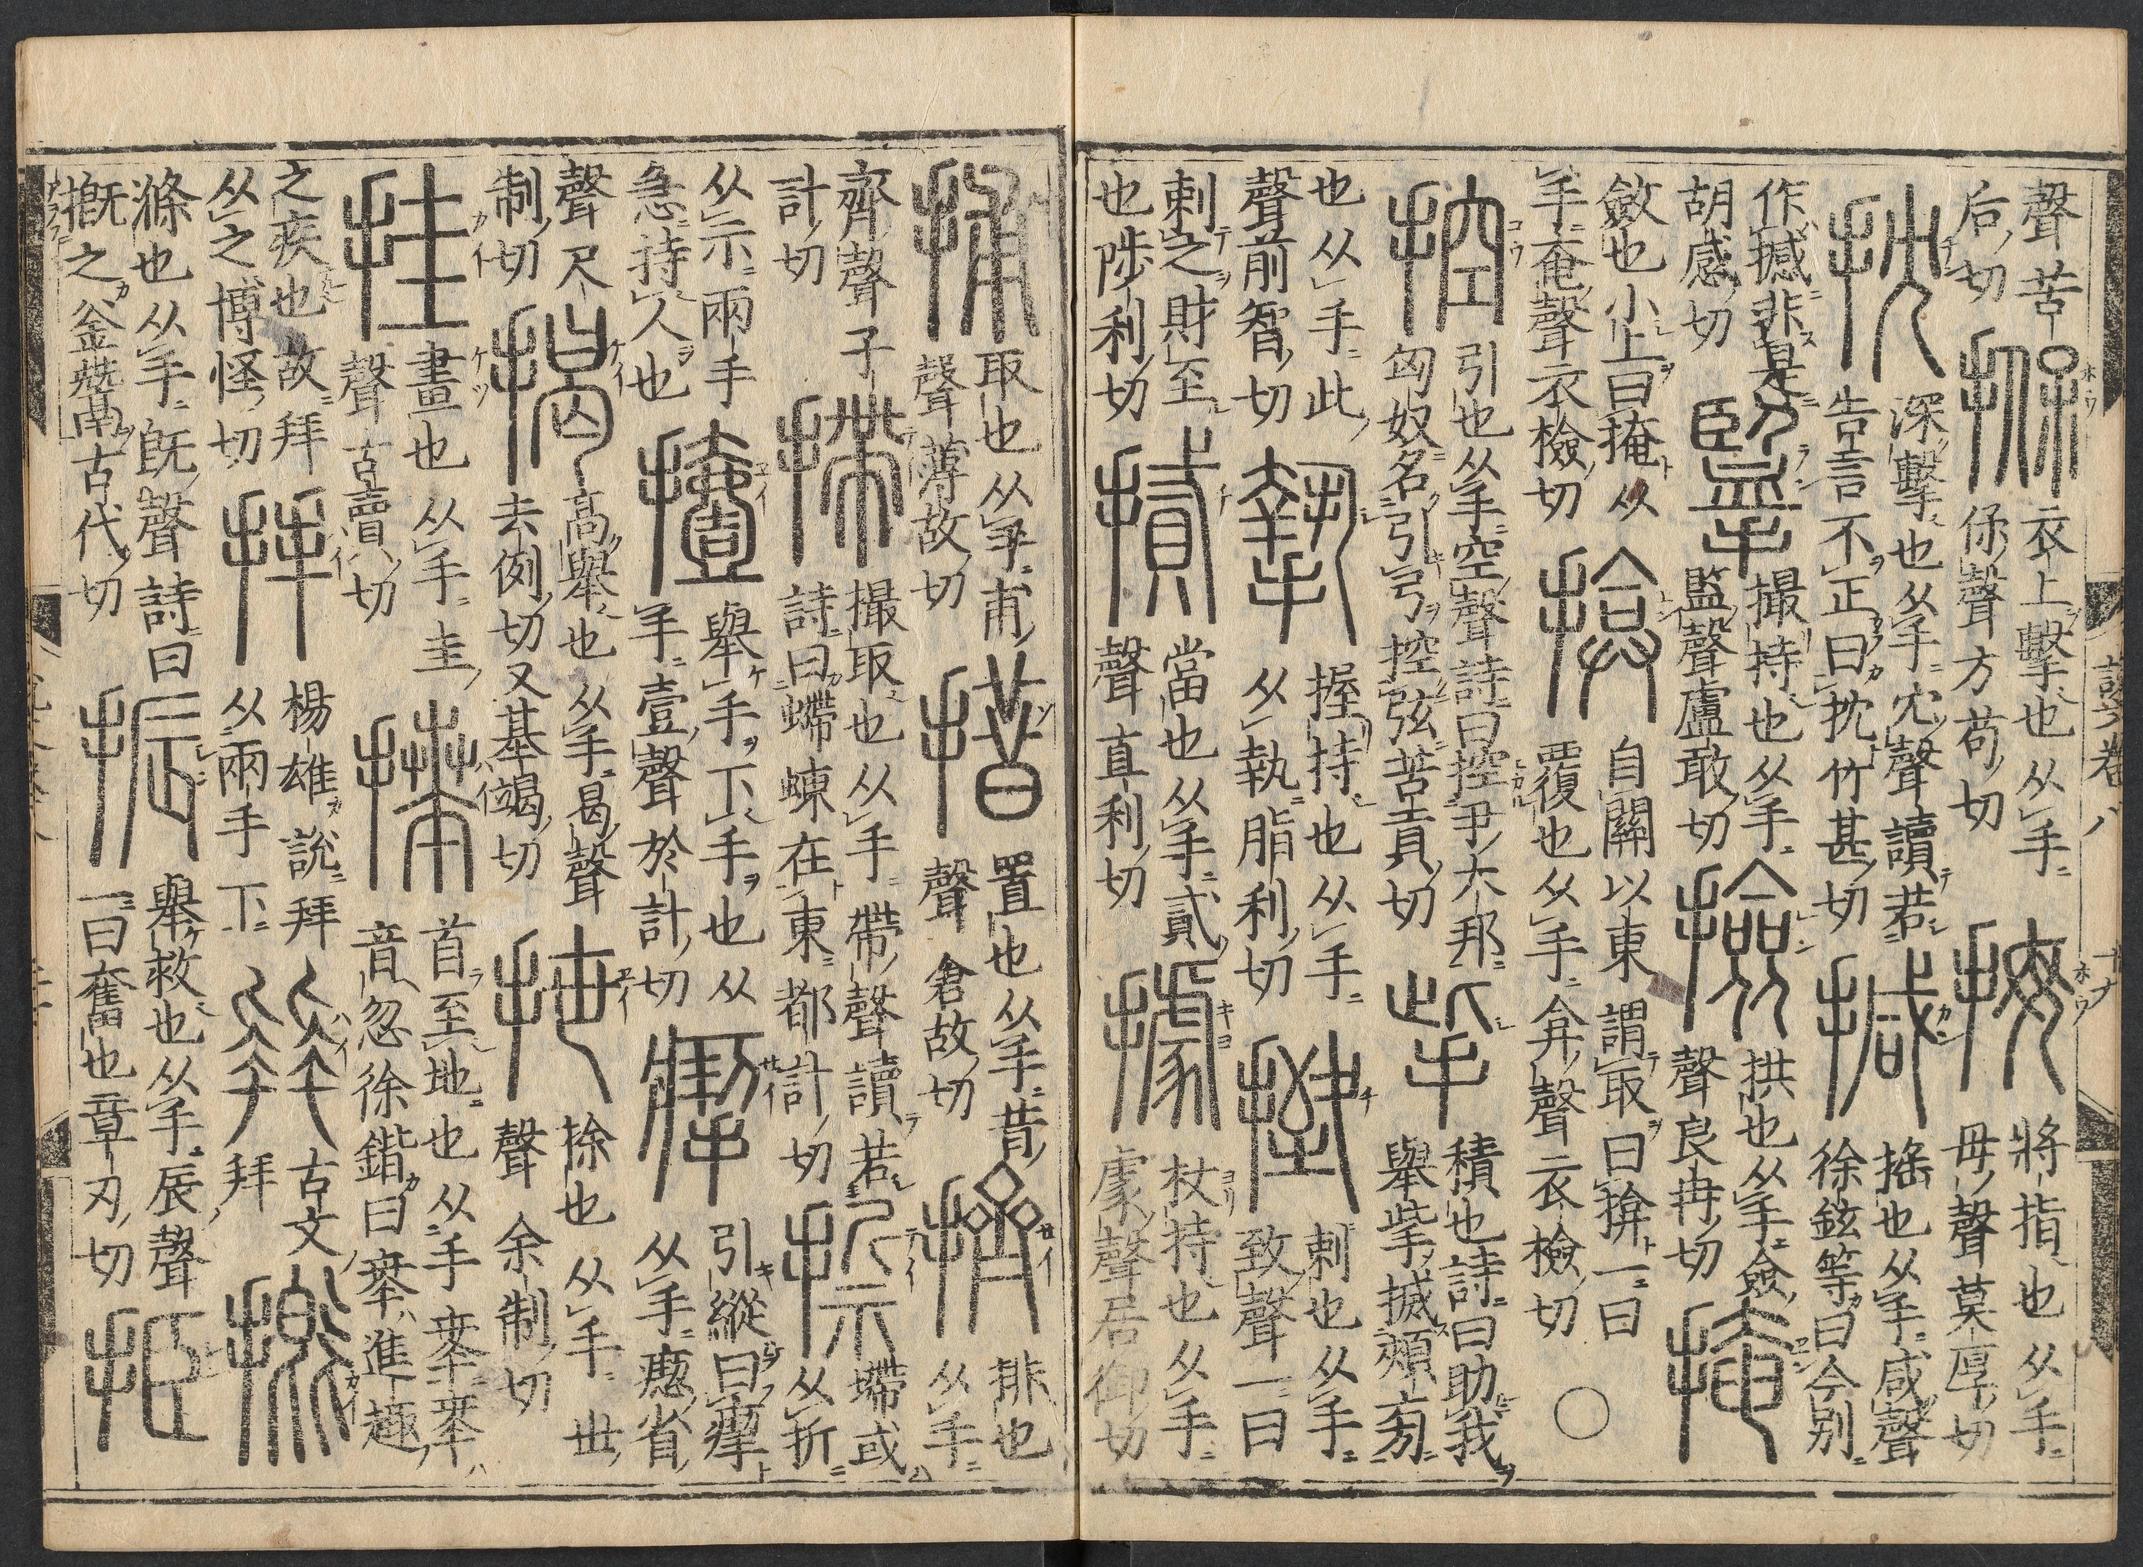 聲苦后切
㨐 衣上擊也从手保聲方苟切
拇 將指也从手母聲莫厚切
抌 深擊也从手冘聲讀若告言不正曰抌竹甚切
㨔 搖也从手咸聲徐鉉等曰今別
作撼非是胡感切
擥 撮持也从手監聲盧敢切
撿 拱也从手僉聲良冉切
掩
斂也小上曰掩从手奄聲衣檢切
揜 自關以東謂取曰揜一曰覆也从手弇聲衣檢切 〇
控 引也从手空聲詩曰控于大邦匈奴名引弓控弦苦貢切
㧘 積也詩曰助我舉㧘搣頰旁
也从手此聲前智切
摯 握持也从手从執脂利切
㨖 刺也从手致聲一曰
刺之財至也陟利切
當也从手貳聲直利切
據 杖持也从手豦聲居御切
說文卷八
捕 取也从手甫聲薄故切
措 置也从手昔聲倉故切
擠 排也从手
齊聲子計切
摕 撮取也从手帶聲讀若詩曰螮蝀在東都計切
摕或从折
从示兩手急持人也
撎 舉手下手也从手壹聲於計切
引縱曰瘳从手瘛省
聲尺制切
揭 高舉也从手曷聲去例切又基竭切
抴 捈也从手世聲余制切
挂 畫也从手圭聲古賣切
𢷎 首至地也从手𠦪𠦪音忽徐鍇曰𠦪進趣
之疾也故拜从之博怪切
拜 楊雄說拜从兩手下
古文拜
摡
滌也从手旣聲詩曰摡之釜鬵古代切
振 舉救也从手辰聲一曰奮也章刃切
挋